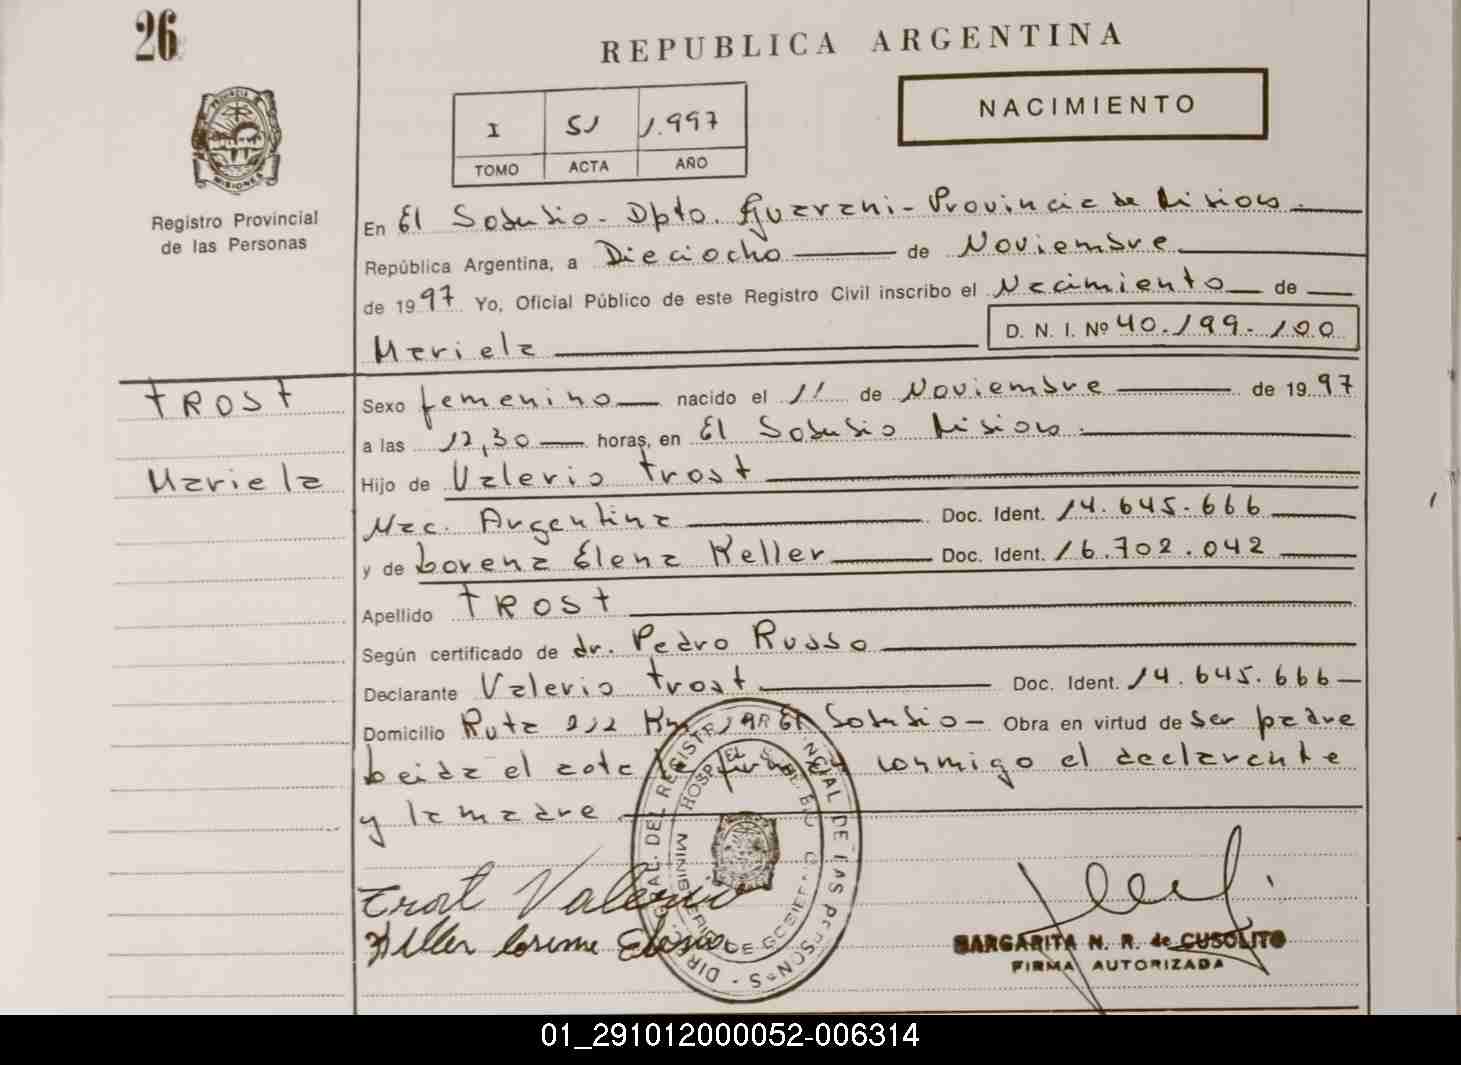 26
REPUBLICA ARGENTINA
PROVINCIA DE
MISIONES
Registro Provincial
de las Personas
I 51 1.997
TOMO ACTA AÑO
NACIMIENTO
En El Soberbio - Dpto. Guarani - Provincia de Misiones.
República Argentina, a Dieciocho de Noviembre
de 1997 Yo, Oficial Público de este Registro Civil inscribo el Nacimiento de
Mariela
D. N. I. Nº 40.199.100
TROST
Mariela
Sexo femenino nacido el 11 de Noviembre de 1997
a las 12,30 horas, en El Soberbio Misiones.
Hijo de Valerio Trost
Nac. Argentina Doc. Ident. 14.645.666
y de Lorena Elena Keller Doc. Ident. 16.702.042
Apellido TROST
Según certificado de dr. Pedro Russo
Declarante Valerio Trost Doc. Ident. 14.645.666
Domicilio Ruta 212 Km El Soberbio - Obra en virtud de ser padre
Leida el acta la firman conmigo el declarante
y la madre
Trost Valerio
Keller Elena
MARGARITA N. R. de CUSOLITO
FIRMA AUTORIZADA
01_291012000052-006314